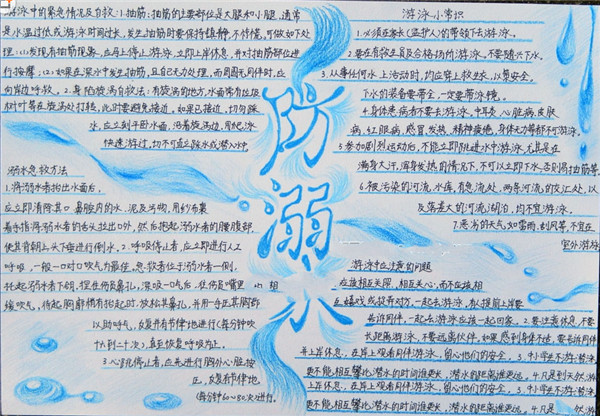 游泳中的紧急情况及自救:1.抽筋:抽筋的主要部位是大腿和小腿,通常
是水温过低或游泳时间过长,发生抽筋时要保持镇静,不惊慌,可做如下处
理:(1)发现有抽筋现象,应马上停止游泳,立即上岸休息,并对抽筋部位进
行按摩;(2)如果在深水中发生抽筋,且自己无力处理,而周围无同伴时,应
向岸呼救。2.身陷漩涡自救法:有漩涡的地方,水面常有垃圾
树叶等在漩涡处打转,此时要避免接近,如果已接近,切勿踩
水,应立刻平卧水面,沿着漩涡边,用爬泳
快速游过,切不可直立踩水或潜入水中
溺水急救方法
1.将溺水者捞出水面后,
应立即清除其口鼻腔内的水、泥及污物,用纱布裹
着手指将溺水者的舌头拉出口外,然后抱起溺水者的腰腹部,
使其背朝上头下垂进行倒水。2.呼吸停止者,应立即进行人工
呼吸,一般一口对口吹气为最佳,急救者位于溺水者一侧,
托起溺水者下颌,捏住伤员鼻孔,深吸一口气后,往伤员嘴里
缓吹气,待起胸廓稍有抬起时,放松其鼻孔,并用一手压其胸部
以助呼气,反复并有节律地进行(每分钟吹
16到20次),直至恢复呼吸为止。
3.心跳停止者,应先进行胸外心脏按
压,反复有节律地
(每分钟60~80次)进行。
防溺水
游泳小常识
1.必须在家长(监护人)的带领下去游泳。
2.要在有救生员及合格场所游泳,不要随兴下水。
3.从事任何水上活动时,均应穿上救生衣,以策安全。
下水的装备要带全,一定要带泳镜。
4.身体患病者不要去游泳,中耳炎、心脏病、皮肤
病、红眼病、感冒发热、精神疲倦、身体无力等都不可游泳。
5.参加剧烈运动后,不能立即跳进水中游泳,尤其是在
满身大汗,浑身发热的情况下,不可以立即下水,否则易抽筋等。
6.被污染的河流、水库,有急流处,两条河流的交汇处,以
及落差大的河流湖泊,均不宜游泳。
7.恶劣的天气如雷雨、刮风等,不宜在
室外游泳
游泳中应注意的问题
小组
应该相互关照,相互关心,而不应该相
互嬉戏或捉弄对方,一起去游泳,有人提前上岸要
告诉同伴,一起去游泳应该一起回家。2.要注意休息,不要
长距离游泳,不要远离伙伴,如果感到身体不适,要告诉同伴
并上岸休息,在岸上观看同伴游泳,留心他们的安全。3.中小学生不游潜泳
更不能相互攀比潜水的时间谁更长,潜水的距离谁更远。4.凡是到天然游
上岸休息,在岸上观看同伴游泳,留心他们的安全。3.中小学生不游潜泳
更不能相互攀比潜水的时间谁更长,潜水的距离谁更远。4.凡是